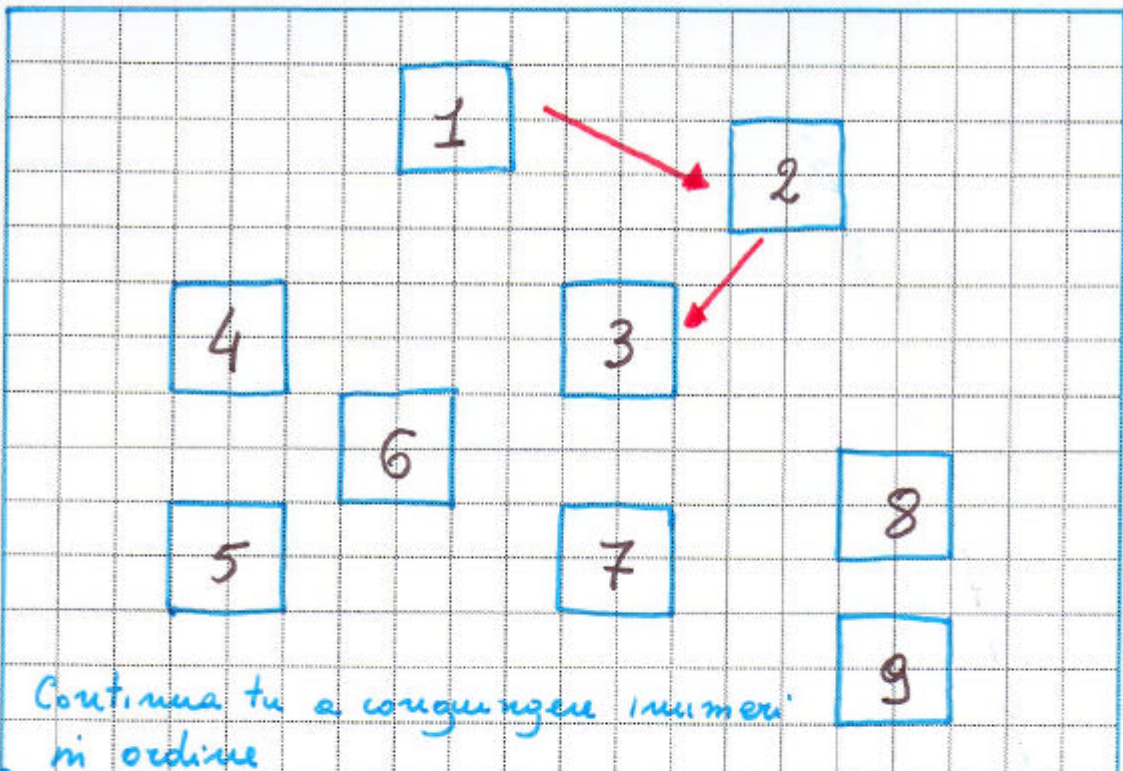 1
2
4
3
6
8
5
7
9
Continua tu a congiungere i numeri
in ordine